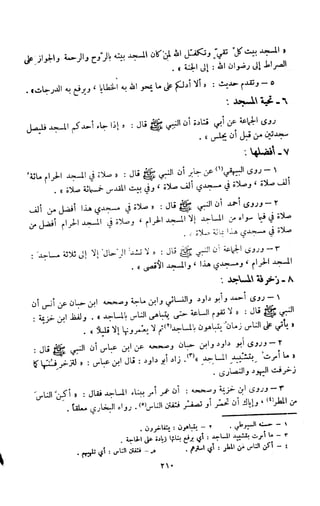 « المسجد بيت كلّ تقيّ وتكفّل الله لمن كان المسجد بيته بالرَّوح والرحمة والجواز على
الصراط إلى رضوان الله : إلى الجنة » .
٥ — وتقدم حديث : « ألا أدلكم على ما يمحو الله به الخطايا ، ويرفع به الدرجات » .
٦ - تحية المسجد :
روى الجماعة عن أبي قتادة أن النبي ﷺ قال : « إذا جاء أحدكم المسجد فليصل
سجدتين من قبل أن يجلس » .
٧ - أفضلها :
١ — روى البيهقي (١) عن جابر أن النبي ﷺ قال : « صلاة في المسجد الحرام مائة
ألف صلاة ، وصلاة في مسجدي ألف صلاة ، وفي بيت المقدس خمسمائة صلاة » .
٢ — وروى أحمد أن النبي ﷺ قال : « صلاة في مسجدي هذا أفضل من ألف
صلاة فيما سواه من المساجد إلا المسجد الحرام ، وصلاة في المسجد الحرام أفضل من
صلاة في مسجدي هذا بمائة صلاة » .
٣ — وروى الجماعة أن النبي ﷺ قال : « لا تشد الرحال إلا إلى ثلاثة مساجد :
المسجد الحرام ، ومسجدي هذا ، والمسجد الأقصى » .
٨ - زخرفة المساجد :
١ — روى أحمد وأبو داود والنسائي وابن ماجة وصححه ابن حبان عن أنس أن
النبي ﷺ قال : « لا تقوم الساعة حتى يتباهى الناس بالمساجد » . ولفظ ابن خزيمة :
« يأتي على الناس زمان يتباهون بالمساجد (٢) ثم لا يعمرونها إلا قليلا » .
٢ — وروى أبو داود وابن حبان وصححه عن ابن عباس أن النبي ﷺ قال :
« ما أمرت بتشييد المساجد » (٣) . زاد أبو داود : قال ابن عباس : « لتزخرفنها كما
زخرفت اليهود والنصارى .
٣ — وروى ابن خزيمة وصححه : أن عمر أمر ببناء المساجد فقال : « أكنّ الناس
من المطر (٤) ، وإياك أن تحمر أو تصفر فتفتن الناس (٥) . رواه البخاري معلقاً .
١ — حسنه السيوطي . ٢ — يتباهون : يتفاخرون .
٣ — ما أمرت بتشييد المساجد : أي برفع بنائها زيادة على الحاجة .
٤ — أكن الناس من المطر : أي استرهم . ٥ — فتفتن الناس : أي تلهيهم .
٢١٠